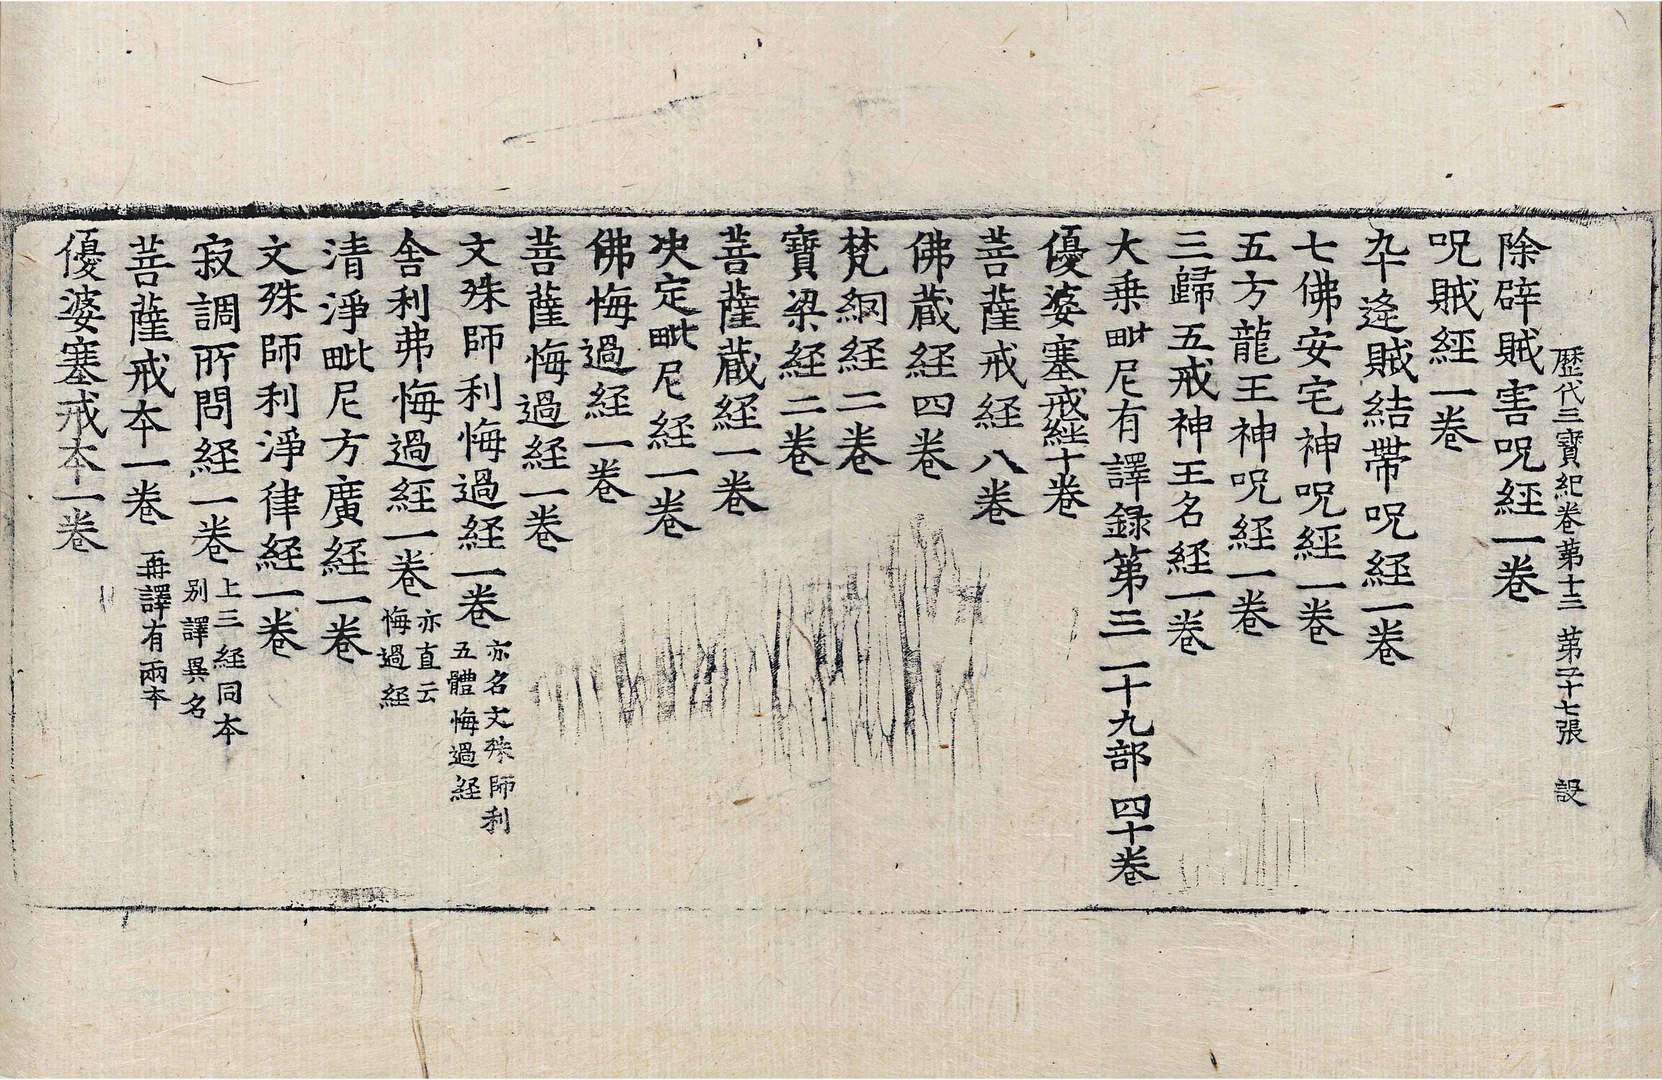 歷代三寶紀卷第十三 第二十七張 設
除辟賊害呪經一卷
呪賊經一卷
卒逢賊結帶呪經一卷
七佛安宅神呪經一卷
五方龍王神呪經一卷
三歸五戒神王名經一卷
大乗毗尼有譯録第三 二十九部 四十卷
優婆塞戒経十卷
菩薩戒経八卷
佛蔵経四卷
梵網経二卷
寶梁経二卷
菩薩蔵経一卷
决定毗尼経一卷
佛悔過経一卷
菩薩悔過経一卷
文殊師利悔過経一卷 亦名文殊師利五體悔過経
舎利弗悔過経一卷 亦直云悔過経
清淨毗尼方廣経一卷
文殊師利淨律経一卷
寂調所問経一卷 上三経同本別譯異名
菩薩戒本一卷 再譯有兩本
優婆塞戒本一卷